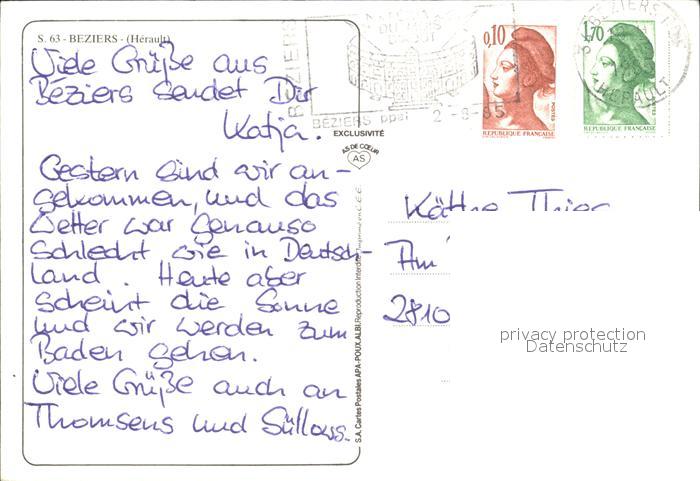 S. 63 - BEZIERS - (Hérault)
Viele Grüße aus
Beziers sendet Dir
Katja.
Gestern sind wir an-
gekommen, und das
Wetter war genauso
schlecht wie in Deutsch-
land. Heute aber
scheint die Sonne
und wir werden zum
Baden gehen.
Viele Grüße auch an
Thomsens und Süllows.
BEZIERS
BEZIERS ppal 2-8-85
EXCLUSIVITÉ
AS DE CŒUR
AS
S.A. Cartes Postales APA-POUX, ALBI. Reproduction Interdite.
0,10
POSTES
REPUBLIQUE FRANÇAISE
1,70
REPUBLIQUE FRANÇAISE
BEZIERS
HERAULT
Käthe
Am
2810
privacy protection
Datenschutz